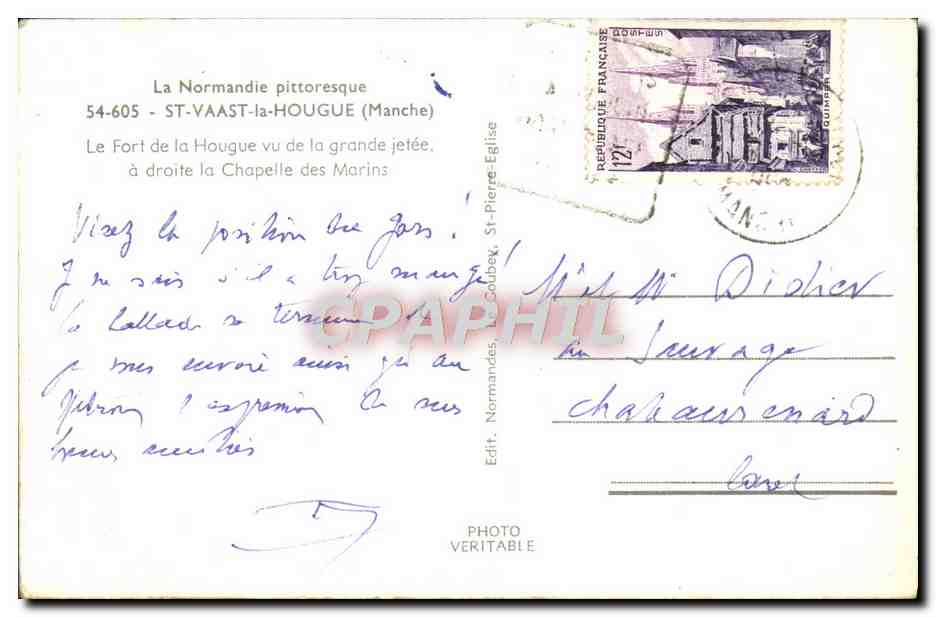 La Normandie pittoresque
54-605 - ST-VAAST-la-HOUGUE (Manche)
Le Fort de la Hougue vu de la grande jetée,
à droite la Chapelle des Marins
la position
Je ne sais s'il a trop mangé!
la ballade se termine
je vous envoie ainsi qu'au
l'expression de mes
Edit. Normandes, Le Goubey, St-Pierre-Eglise
PHOTO
VERITABLE
REPUBLIQUE FRANÇAISE
POSTES
12F
QUIMPER
MANCHE
M et Mme Didier
au Sauvage
Chateaurenard
Loiret
CPAPHIL